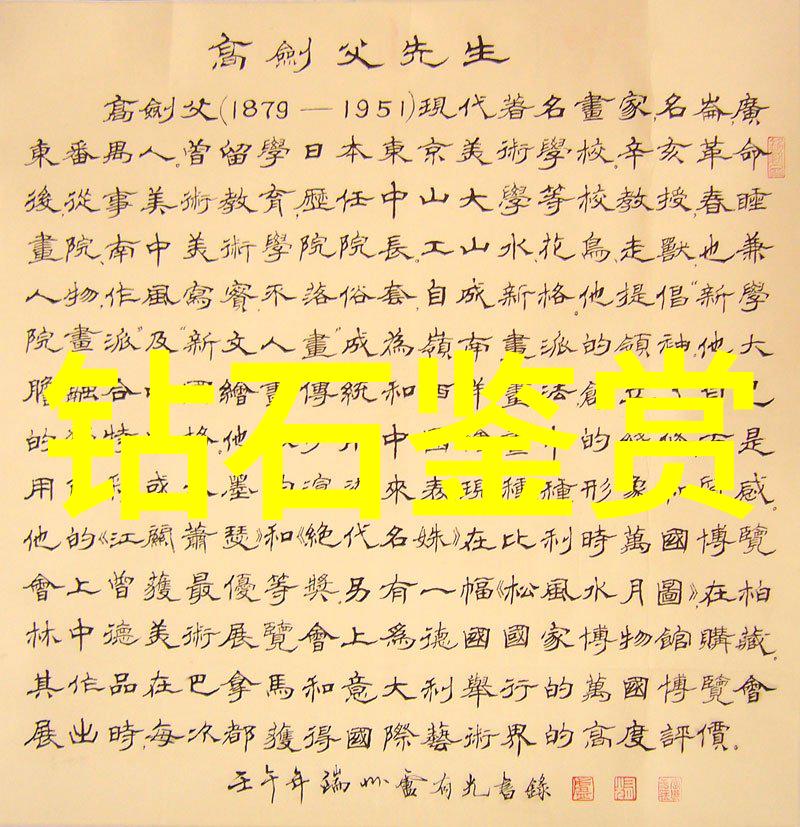 高劍父先生
高劍父(1879—1951)現代著名畫家,名崙,廣
東番禺人。曾留學日本東京美術學校。辛亥革命
後,從事美術教育,歷任中山大學等校教授,春睡
畫院、南中美術學院院長。工山水、花鳥、走獸,也兼
人物,作風寫實,不落俗套,自成新格。他提倡“新學
院畫派”及“新文人畫”成為嶺南畫派的領袖。他大
膽融合中國繪畫傳統和西洋畫法,創
的 他 中 的 是
用 或 墨 來表現種種形象 感。
他的《江關蕭瑟》和《絕代名姝》在比利時萬國博覽
會上曾獲最優等獎。另有一幅《松風水月圖》,在柏
林中德美術展覽會上為德國國家博物館購藏。
其作品在巴拿馬和意大利舉行的萬國博覽會
展出時,每次都獲得國際藝術界的高度評價。
壬午年端州盧有光書錄
钻石鉴赏